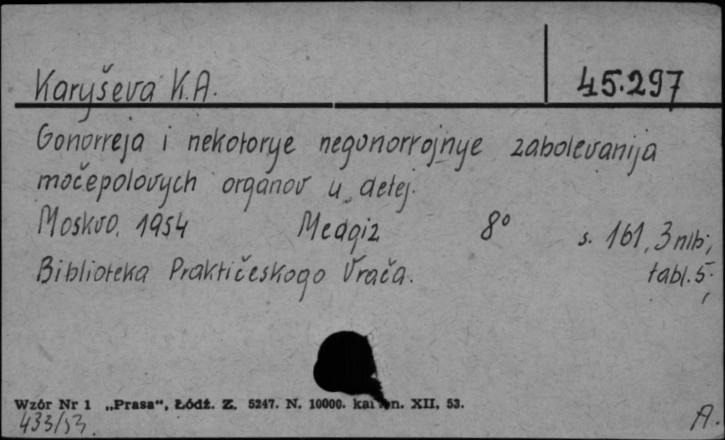 Karyševa K.A. 45.297
Gonorreja i nekotorye negonorrojnye zabolevanija
močepolovych organov u detej.
Moskva, 1954 Medgiz 8° s. 161, 3 nlb;
Biblioteka Praktičeskogo Vrača. tabl. 5;
Wzór Nr 1 „Prasa“, Łódź. Z. 5247. N. 10000. XII, 53.
433/53.
A.